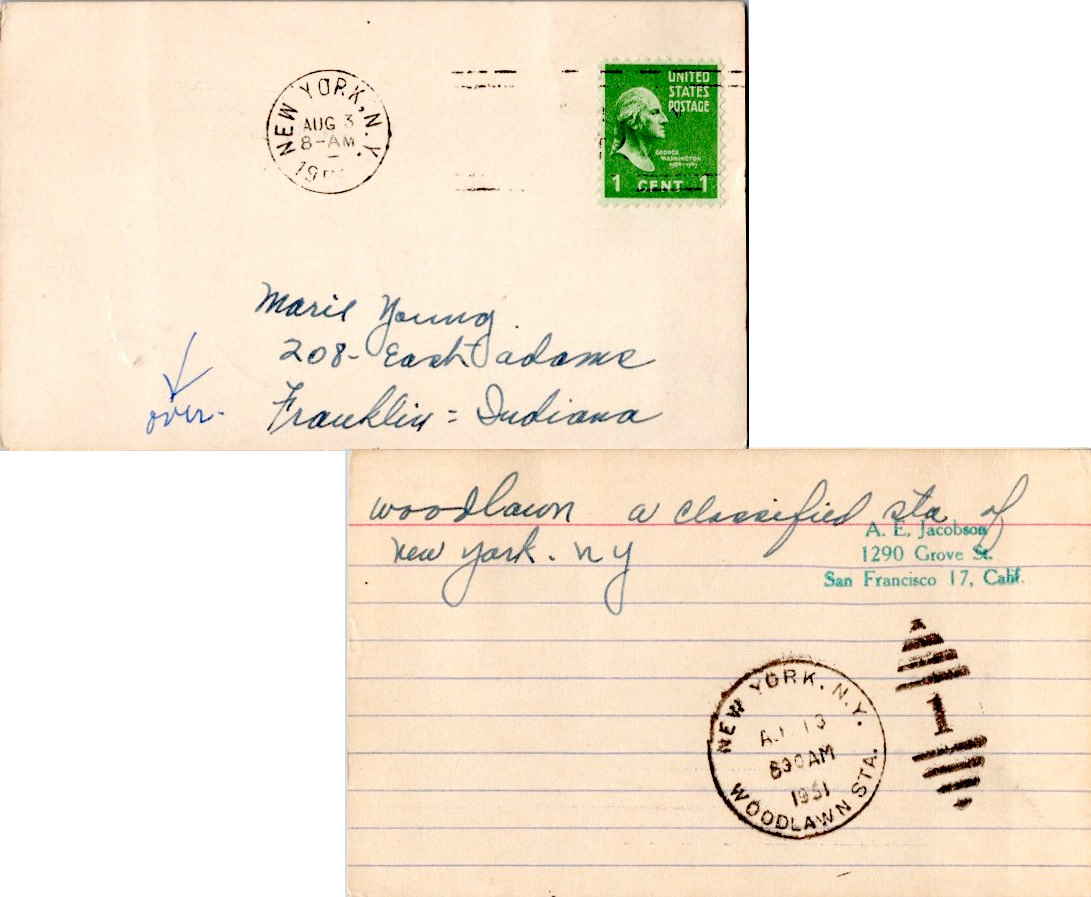 NEW YORK, N.Y.
AUG 3
8-AM
UNITED
STATES
POSTAGE
GEORGE
WASHINGTON
1 CENT 1
Marie Young
208- East adams
Franklin = Indiana
over-
woodlawn a classified sta of
new york. ny
A. E. Jacobson
1290 Grove St.
San Francisco 17, Calif.
NEW YORK, N.Y.
830AM
1951
WOODLAWN STA.
1